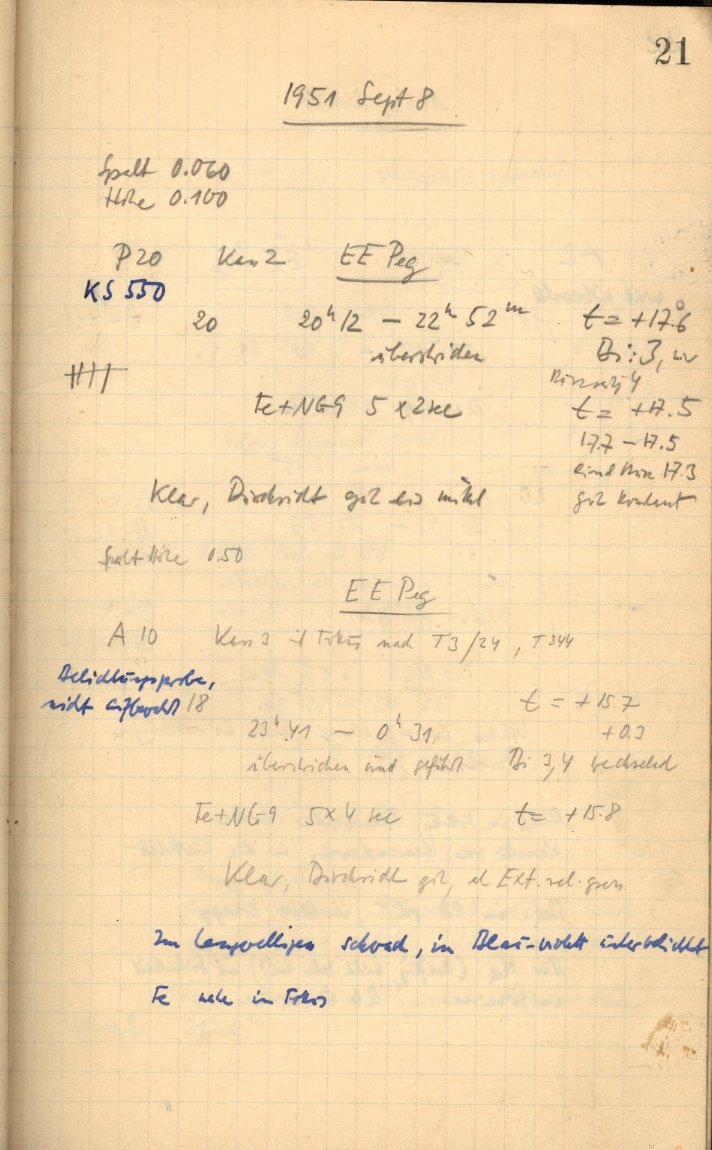 21
1951 Sept 8
Spalt 0.060
Höhe 0.100
P 20 Kass 2 EE Peg
KS 550
20 20ʰ12 – 22ʰ 52ᵐ t = +17.°6
überstrichen Bi: 3,
4
Fe+NG9 5 x 2 sec t = +17.5
17.7 – 17.5
17.3
gut konstant
Klar, Durchsicht gut bis mittel
Spalt Höhe 0.50
EE Peg
A 10 Kass 3 Fokus nach T3/24, T344
Belichtungsprobe,
nicht aufbewahrt 18 t = +15.7
23ʰ41 – 0ʰ31 +0.3
überstrichen und geführt Bi 3,4 wechselnd
Fe+NG9 5x4 sec t = +15.8
Klar, Durchsicht gut, Ext. rel. gross
Im langwelligen schwach, in Blau-violett unterbelichtet
Fe nahe im Fokus